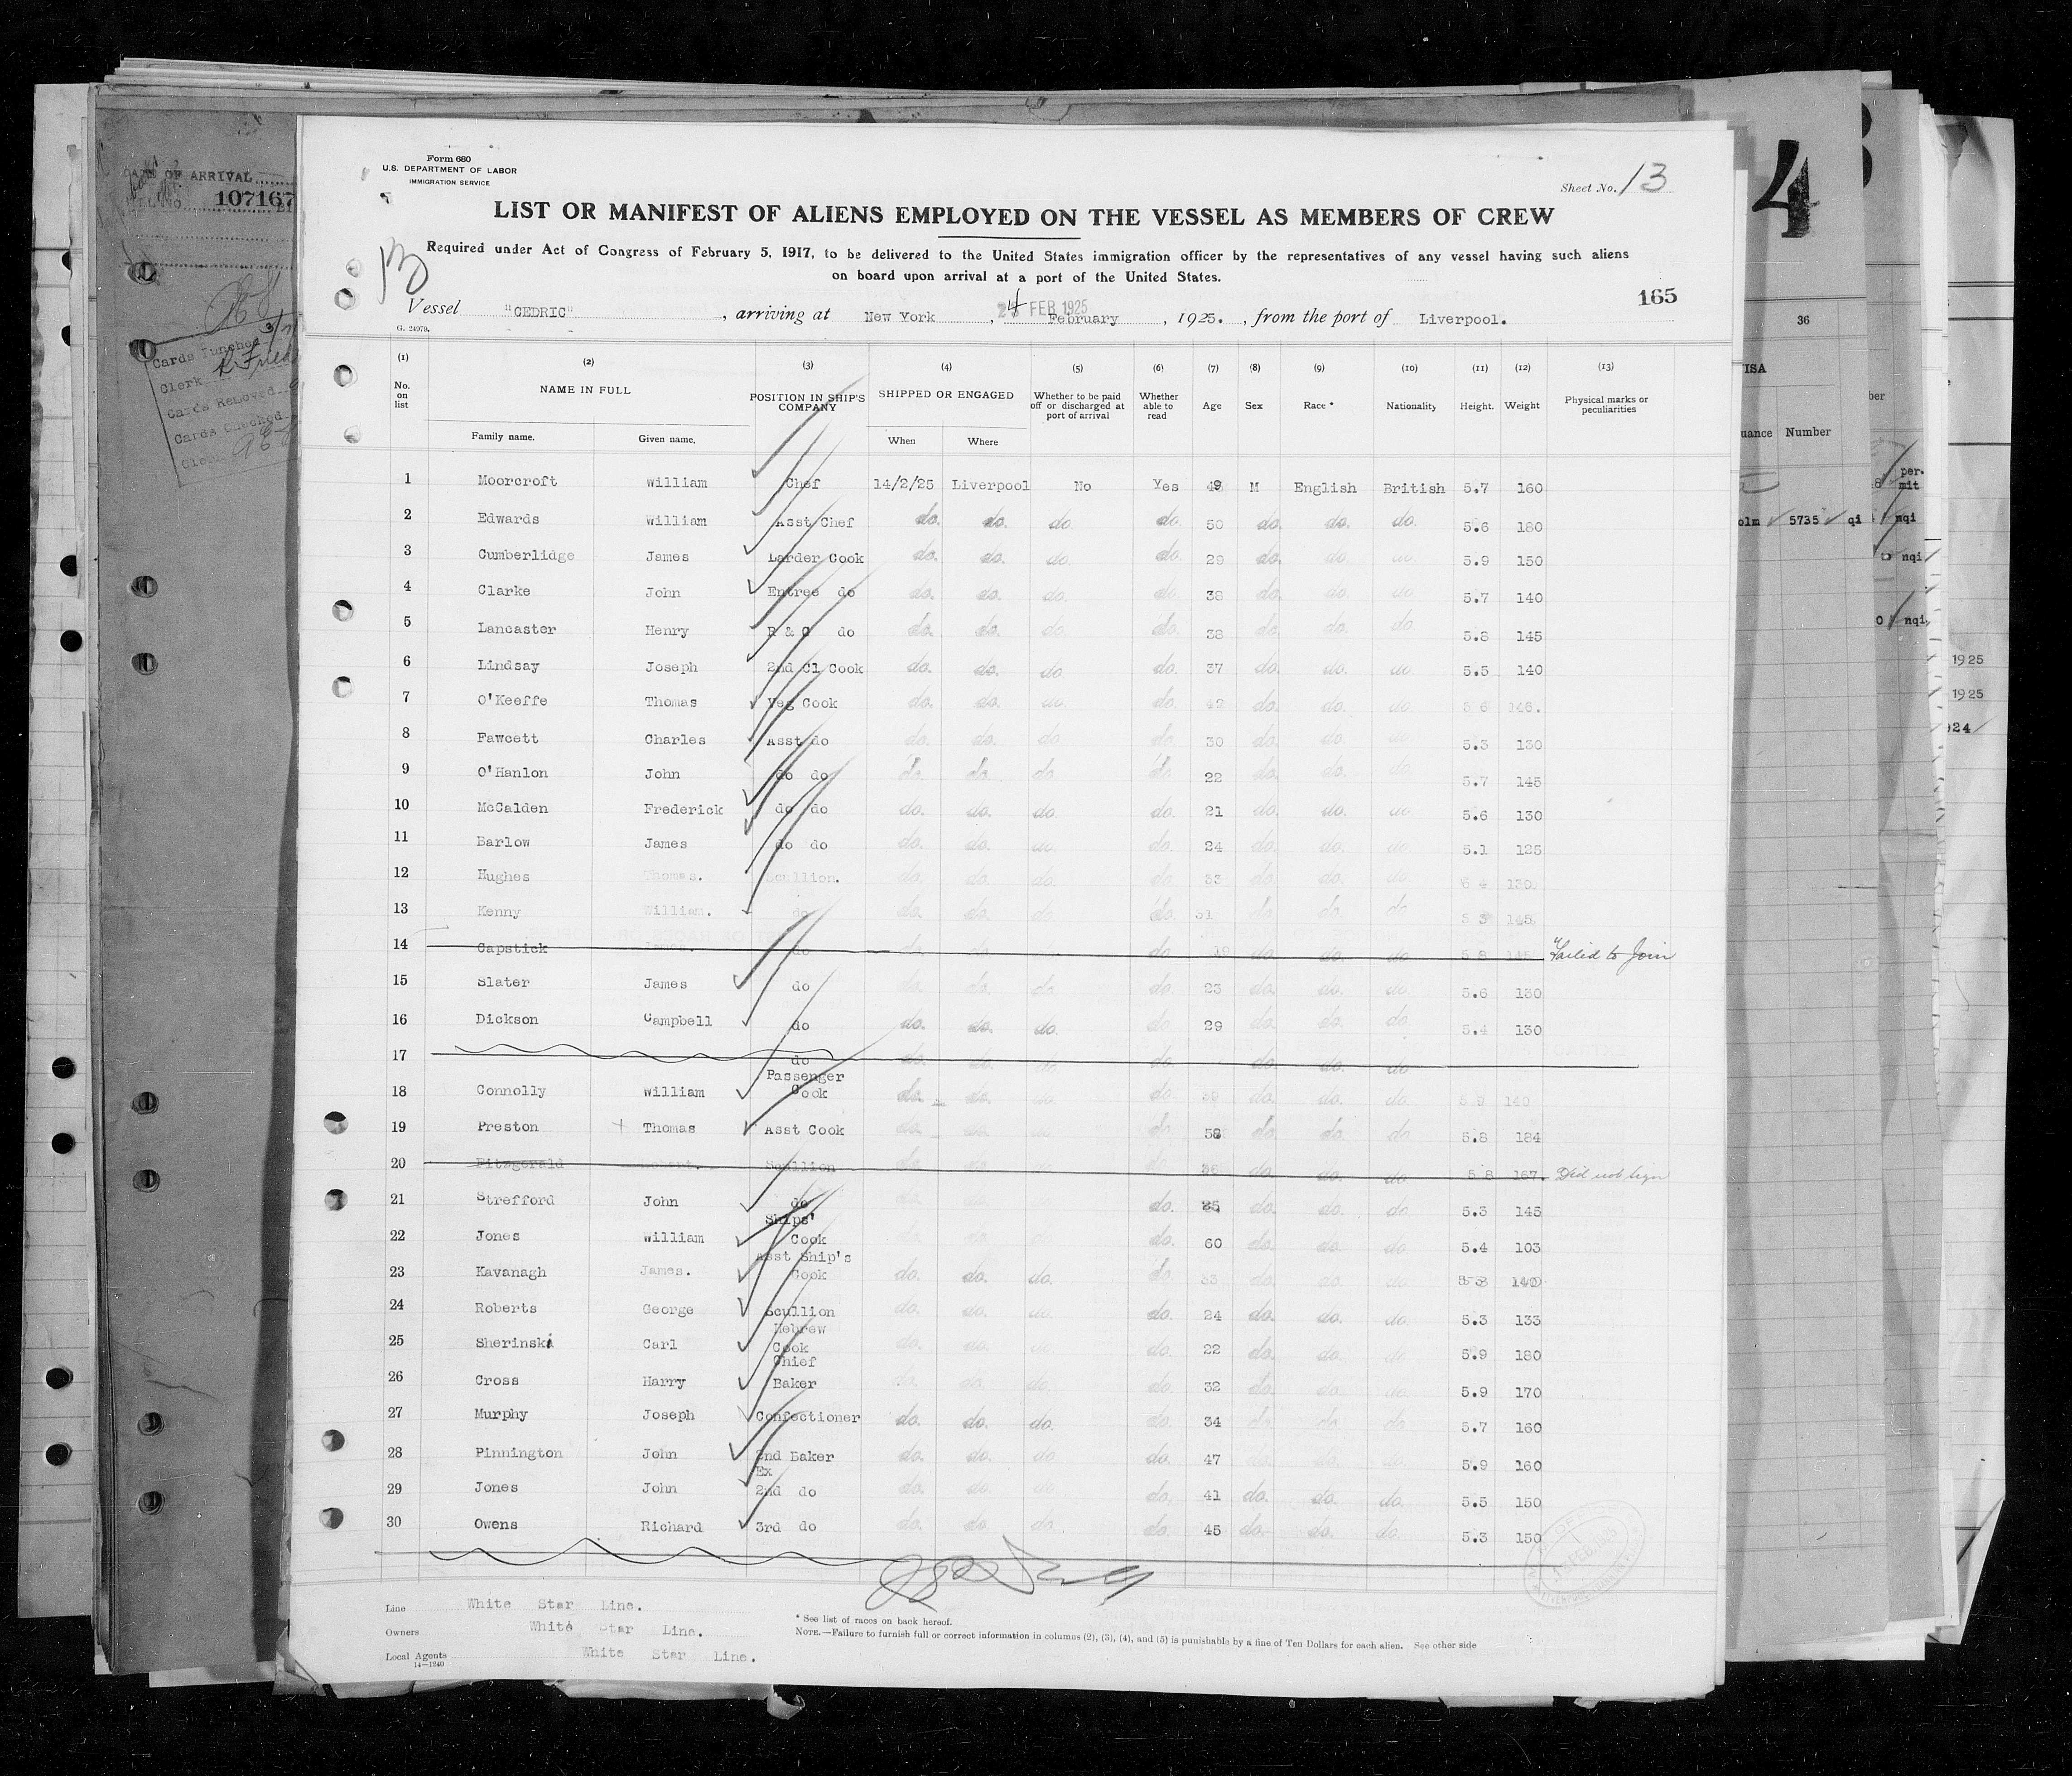 Form 680
U.S. DEPARTMENT OF LABOR
IMMIGRATION SERVICE
Sheet No. 13
LIST OR MANIFEST OF ALIENS EMPLOYED ON THE VESSEL AS MEMBERS OF CREW
Required under Act of Congress of February 5, 1917, to be delivered to the United States immigration officer by the representatives of any vessel having such aliens
on board upon arrival at a port of the United States.
165
Vessel "CEDRIC", arriving at New York, 24 FEB 1925 February, 1925., from the port of Liverpool.
G. 24979.
(1) (2) (3) (4) (5) (6) (7) (8) (9) (10) (11) (12) (13)
No. on list NAME IN FULL POSITION IN SHIP'S COMPANY SHIPPED OR ENGAGED Whether to be paid off or discharged at port of arrival Whether able to read Age Sex Race * Nationality Height. Weight Physical marks or peculiarities
Family name. Given name. When Where
1 Moorcroft William Chef 14/2/25 Liverpool No Yes 49 M English British 5.7 160
2 Edwards William Asst Chef do. do. do do. 50 do. do. do. 5.6 180
3 Cumberlidge James Larder Cook do. do. do. do. 29 do. do. do 5.9 150
4 Clarke John Entree do do. do. do. do. 38 do. do. do 5.7 140
5 Lancaster Henry R & C do do. do. do. do. 38 do. do. do 5.8 145
6 Lindsay Joseph 2nd Cl Cook do. do. do. do. 37 do. do. do. 5.5 140
7 O'Keeffe Thomas Veg Cook do. do. do. do. 42 do. do. do. 5 6 146.
8 Fawcett Charles Asst do do. do. do. do. 30 do. do. do. 5.3 130
9 O'Hanlon John do do do. do. do. do. 22 do. do. do. 5.7 145
10 McCalden Frederick do do do. do. do. do. 21 do. do. do. 5.6 130
11 Barlow James do do do. do. do. do. 24 do. do. do. 5.1 125
12 Hughes Thomas. Scullion. do. do. do. do. 33 do. do. do. 130.
13 Kenny William. do do. do. do. do. 31 do. do. do 5 3 145.
14 Capstick do do. do. do. do 19 do. do. do 5 8 Failed to Join
15 Slater James do do. do. do. do. 23 do. do. do. 5.6 130
16 Dickson Campbell do do. do. do. do. 29 do. do. do 5.4 130
17 do do. do. do. do. do. do. do
Passenger
18 Connolly William Cook do. do. do. do. do. do. do. 5 9 140
19 Preston Thomas Asst Cook do. do. do. do. 58 do. do. do 5.8 184
20 Fitzgerald Scullion do. do. do. do. do. do 5 8 167. Did not Sign
21 Strefford John do do. do. do. do. 5.3 145
Ships'
22 Jones William Cook do. 60 do. do. do. 5.4 103
Asst Ship's
23 Kavanagh James. Cook do. do. do. do. 33 do. do. do 140
24 Roberts George Scullion do. do. do. do. 24 do. do. do. 5.3 133
Hebrew
25 Sherinski Carl Cook do. do. do. do. 22 do. do. do 5.9 180
Chief
26 Cross Harry Baker do. do. do. do. 32 do. do. do. 5.9 170
27 Murphy Joseph Confectioner do. do. do. do. 34 do. do. do. 5.7 160
28 Pinnington John 2nd Baker do. do. do do. 47 5.9 160
Ex
29 Jones John 2nd do do. do. do. do. 41 do. do. do. 5.5 150
30 Owens Richard 3rd do do. do. do. do. 45 do. do. do. 5.3 150
Line White Star Line.
Owners White Star Line.
Local Agents White Star Line.
14—1240
* See list of races on back hereof.
NOTE.—Failure to furnish full or correct information in columns (2), (3), (4), and (5) is punishable by a fine of Ten Dollars for each alien. See other side
OF ARRIVAL
107167
Cards Punched
Clerk
Cards Removed
Cards Checked
Clerk
4
36
ISA
Number
5735 qi
per-
mit
nqi
nqi
nqi
1925
1925
924